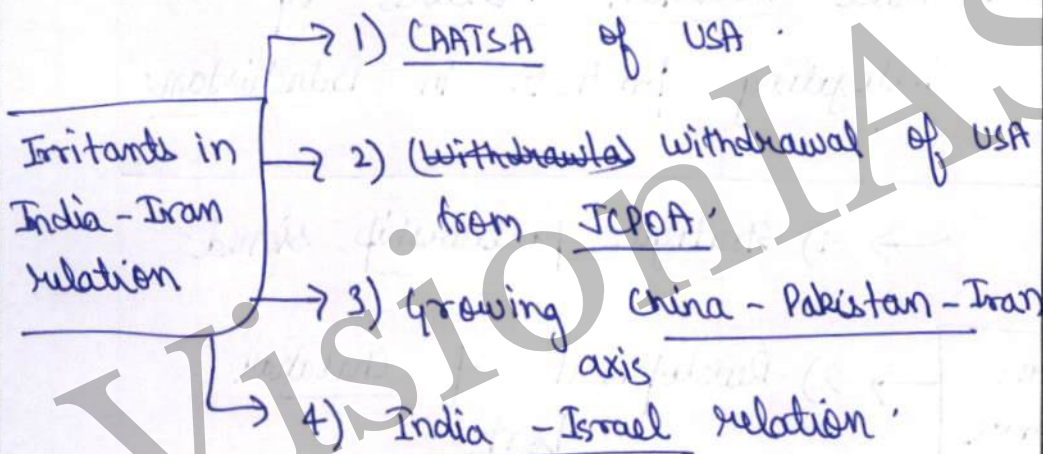 1) CAATSA of USA.
Irritants in
India - Iran
relation
2) (Withdrawla) withdrawal of USA
from JCPOA.
3) Growing China - Pakistan - Iran
axis
4) India - Israel relation.
VisionIAS